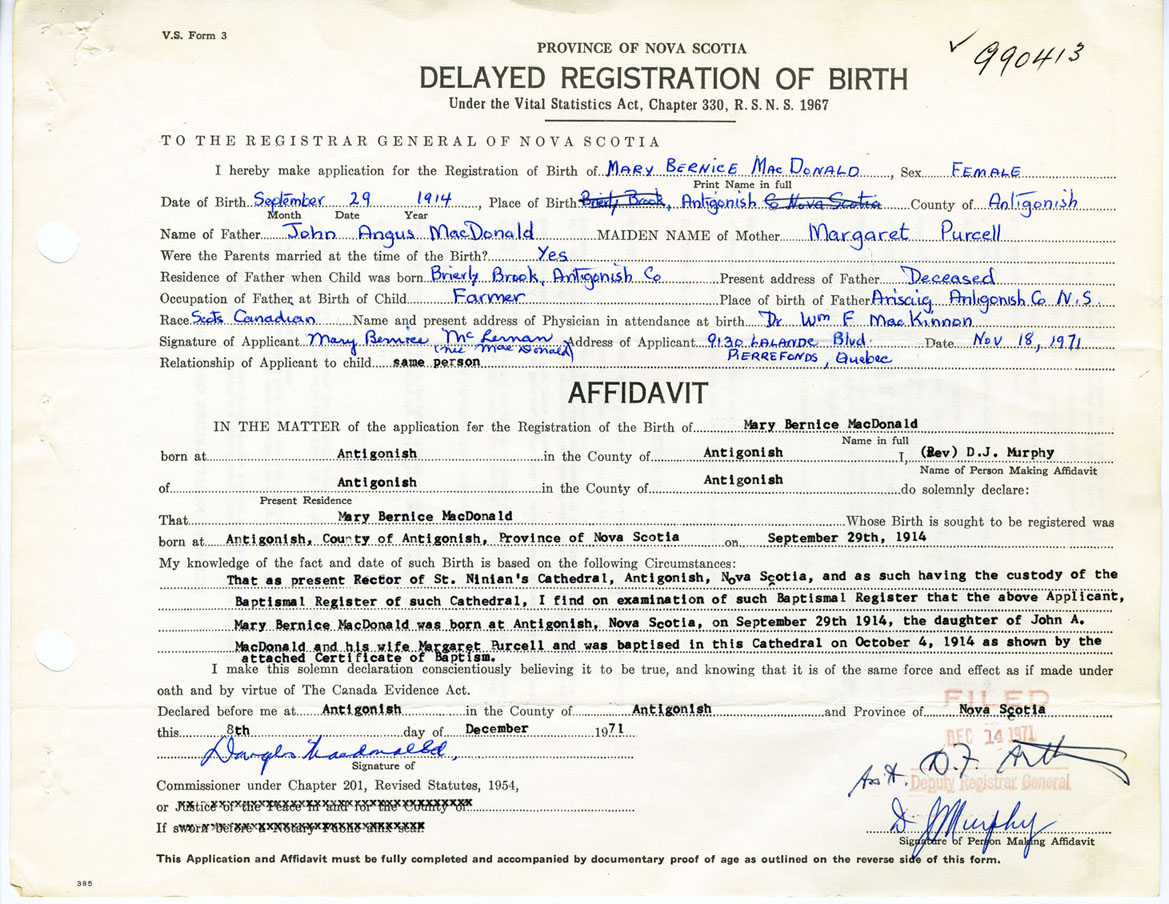 V.S. Form 3
✓ 990413
PROVINCE OF NOVA SCOTIA
DELAYED REGISTRATION OF BIRTH
Under the Vital Statistics Act, Chapter 330, R.S.N.S. 1967
TO THE REGISTRAR GENERAL OF NOVA SCOTIA
I hereby make application for the Registration of Birth of MARY BERNICE MacDONALD, Sex FEMALE
Print Name in full
Date of Birth September 29 1914, Place of Birth Brierly Brook, Antigonish Co Nova Scotia County of Antigonish
Month Date Year
Name of Father John Angus MacDonald MAIDEN NAME of Mother Margaret Purcell
Were the Parents married at the time of the Birth? Yes
Residence of Father when Child was born Brierly Brook, Antigonish Co Present address of Father Deceased
Occupation of Father at Birth of Child Farmer Place of birth of Father Arisaig, Antigonish Co N.S.
Race Scots Canadian Name and present address of Physician in attendance at birth Dr Wm F MacKinnon
Signature of Applicant Mary Bernice McLennan Address of Applicant 9130 LALANDE Blvd. Date Nov 18, 1971
(nee MacDonald) PIERREFONDS, Quebec
Relationship of Applicant to child same person
AFFIDAVIT
IN THE MATTER of the application for the Registration of the Birth of Mary Bernice MacDonald
Name in full
born at Antigonish in the County of Antigonish I, (Rev) D.J. Murphy
Name of Person Making Affidavit
of Antigonish in the County of Antigonish do solemnly declare:
Present Residence
That Mary Bernice MacDonald Whose Birth is sought to be registered was
born at Antigonish, County of Antigonish, Province of Nova Scotia on September 29th, 1914
My knowledge of the fact and date of such Birth is based on the following Circumstances:
That as present Rector of St. Ninian's Cathedral, Antigonish, Nova Scotia, and as such having the custody of the
Baptismal Register of such Cathedral, I find on examination of such Baptismal Register that the above Applicant,
Mary Bernice MacDonald was born at Antigonish, Nova Scotia, on September 29th 1914, the daughter of John A.
MacDonald and his wife Margaret Purcell and was baptised in this Cathedral on October 4, 1914 as shown by the
attached Certificate of Baptism.
I make this solemn declaration conscientiously believing it to be true, and knowing that it is of the same force and effect as if made under
oath and by virtue of The Canada Evidence Act.
FILED
Declared before me at Antigonish in the County of Antigonish and Province of Nova Scotia
this 8th day of December 1971
DEC 14 1971
Douglas Macdonald
Signature of
Asst. D.F.
Deputy Registrar General
Commissioner under Chapter 201, Revised Statutes, 1954,
or Justice of the Peace in and for the County of
If sworn before a Notary Public affix seal.
D J Murphy
Signature of Person Making Affidavit
This Application and Affidavit must be fully completed and accompanied by documentary proof of age as outlined on the reverse side of this form.
385